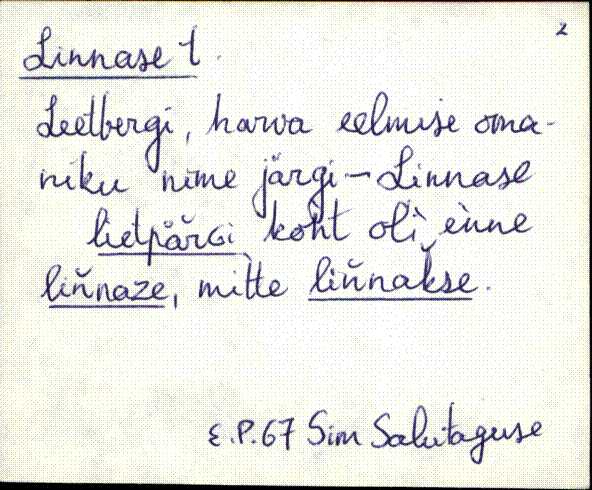 2
Linnase t.
Leetbergi, harva eelmise oma-
niku nime järgi – Linnase
koht oli ènne
liňnaze, mìtte liňnakse.
E.P. 67 Sim Salutaguse